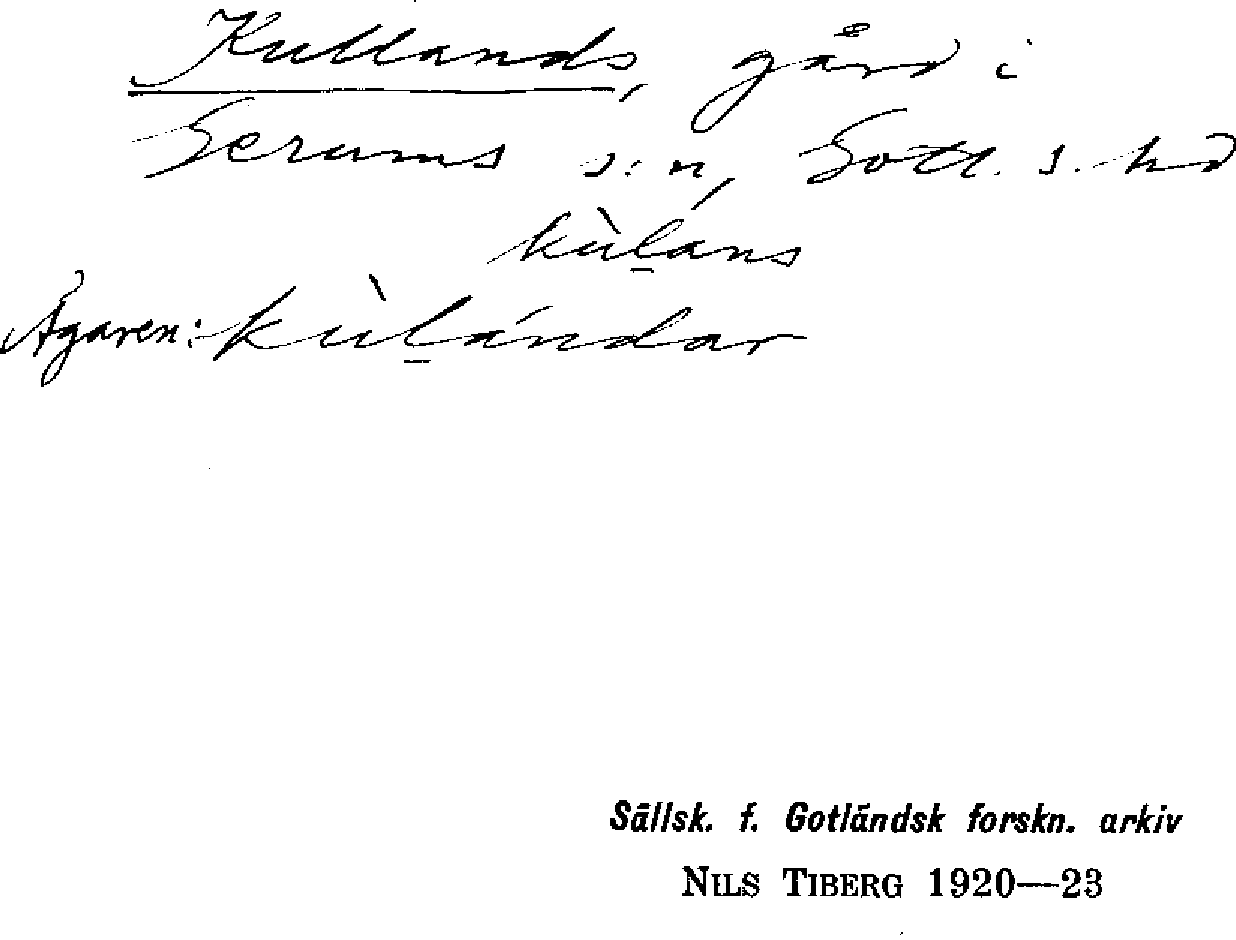 Kullands, gård i
Gerums s:n, Gotl. s. hd
kùl̲áns
Ägaren: kùl̲ándar
Sällsk. f. Gotländsk forskn. arkiv
NILS TIBERG 1920—23